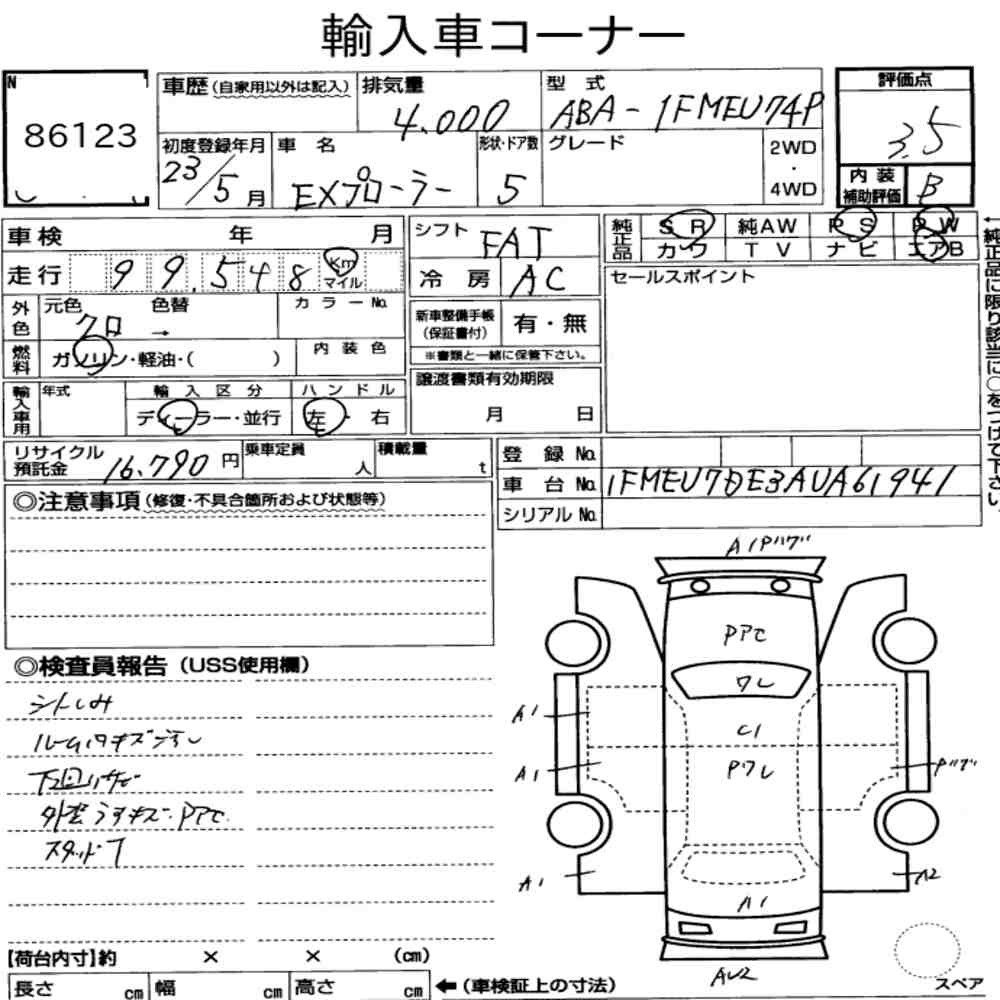 輸入車コーナー
N
86123
車歴 (自家用以外は記入)
排気量
4.000
型式
ABA-1FMEU74P
評価点
3.5
初度登録年月
23/5月
車名
EXプローラー
形状・ドア数
5
グレード
2WD
・
4WD
内装補助評価
B
車検 年 月
走行 99.548 Km マイル
シフト
FAT
冷房
AC
純正品
SR 純AW PS PW
カワ TV ナビ エアB
←純正品に限り該当に○をつけて下さい。
セールスポイント
外色
元色 色替
クロ →
カラーNo.
新車整備手帳
(保証書付)
有・無
※書類と一緒に保管下さい。
燃料
ガソリン・軽油・( )
内装色
譲渡書類有効期限
月 日
輸入車用
年式
輸入区分
ディーラー・並行
ハンドル
左・右
リサイクル預託金
16.790円
乗車定員
人
積載量
t
登録No.
車台No. 1FMEU7DE3AUA61941
シリアルNo.
◎注意事項 (修復・不具合箇所および状態等)
◎検査員報告 (USS使用欄)
シートしみ
下回りサビ
A1 Pツブ
Pアセ
ワレ
A1
C1
Pワレ
A1
Pツブ
A1
A2
A1
AU2
スペア
【荷台内寸】約 × × (cm)
長さ cm 幅 cm 高さ cm
←(車検証上の寸法)